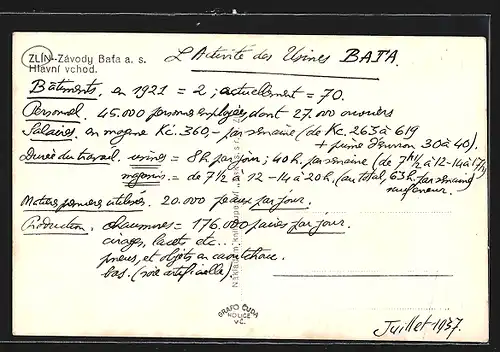 ZLÍN-Závody Baťa a. s.
Hlavní vchod.
L'Activité des Usines BATA.
Bâtiments, en 1921 = 2; actuellement = 70.
Personnel. 45.000 personnes employées, dont 27.000 ouvriers
Salaires. en moyenne Kč. 360,- par semaine (de Kc. 263 à 619
+ prime d'environ 30 à 40).
Durée du travail. usines = 8h par jour; 40h. par semaine (de 7h1/2 à 12-14 à 17h)
magasins. = de 7 1/2 à 12 - 14 à 20h. (au total, 63h. par semaine
Matières premières utilisées. 20.000 peaux par jour.
Production. chaussures = 176.000 paires par jour.
cirages, lacets etc..
pneus, et objets en caoutchouc
bas. (soie artificielle)
GRAFO ČUDA
HOLICE
VČ.
Juillet 1937.